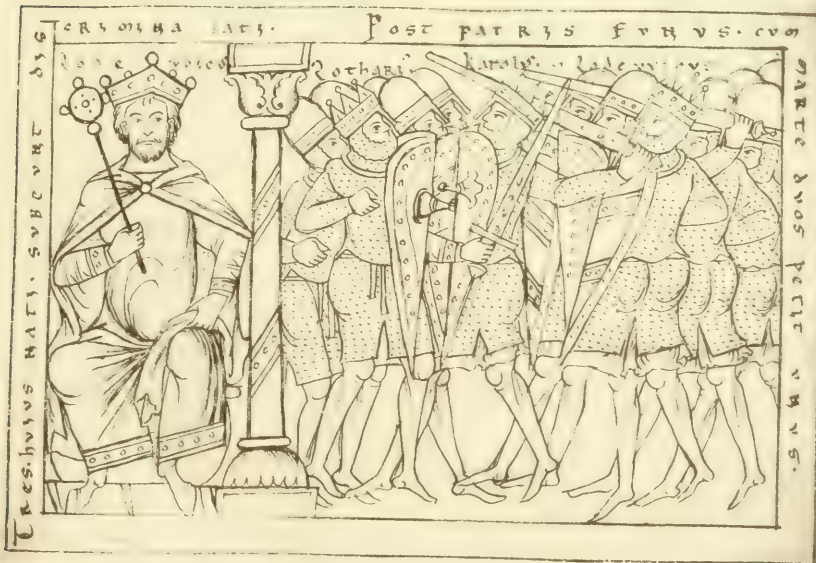 TRES.HVIVS NATI. SVBEVNT DIS
CRIMINA FATI.
POST PATRIS FVNVS. CVM
MARTE DVOS PETIT VNVS.
Lothari
Karolus
Lodewicus